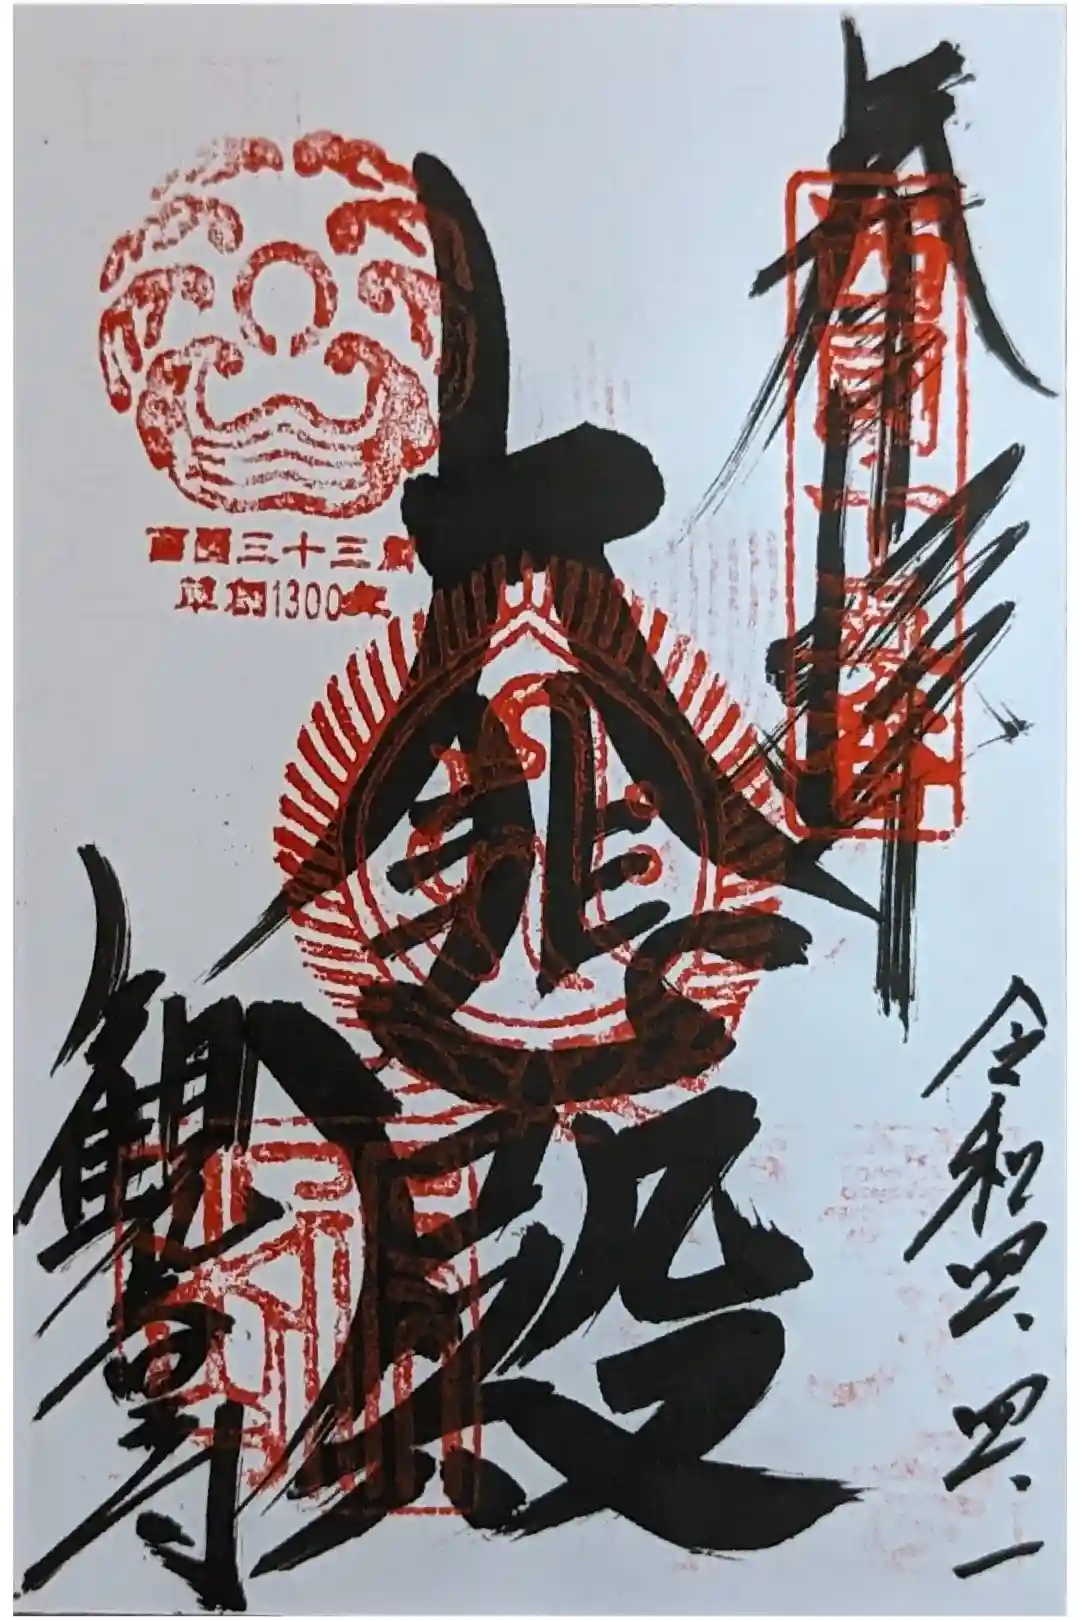 奉拝
大悲殿
観音寺
令和四、四、一
西国三十三所
草創1300年